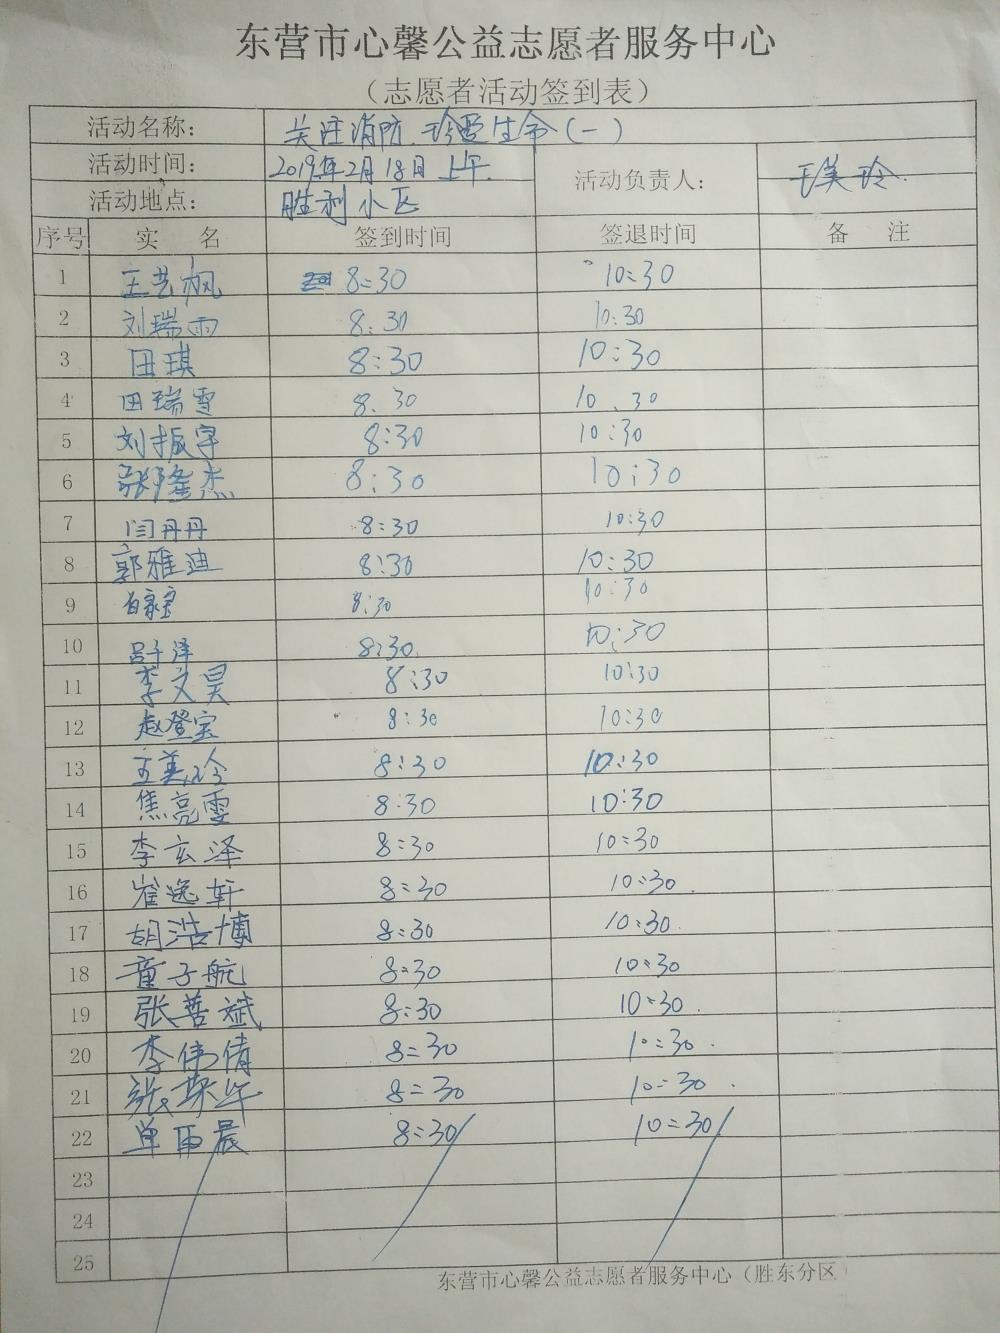 东营市心馨公益志愿者服务中心
（志愿者活动签到表）
活动名称： 关注消防、珍爱生命（一）
活动时间： 2019年2月18日上午.
活动负责人： 王美玲.
活动地点： 胜利小区
序号 实 名 签到时间 签退时间 备 注
1 王艺枫 8:30 10:30
2 刘瑞雨 8:30 10:30
3 田琪 8:30 10:30
4 田瑞雪 8.30 10.30
5 刘振宇 8:30 10:30
6 张隆杰 8:30 10:30
7 闫丹丹 8:30 10:30
8 郭雅迪 8:30 10:30
9 8:30 10:30
10 吕子泽 8:30. 10:30
11 李文昊 8:30 10:30
12 赵登宝 8:30 10:30
13 王美玲 8:30 10:30
14 焦亮雯 8:30 10:30
15 李玄泽 8:30 10:30
16 崔逸轩 8:30 10:30.
17 胡浩博 8:30 10:30.
18 童子航 8:30 10:30
19 张善斌 8:30 10:30.
20 李伟倩 8:30 10:30.
21 8:30 10:30.
22 8:30 10:30
23
24
25
东营市心馨公益志愿者服务中心（胜东分区